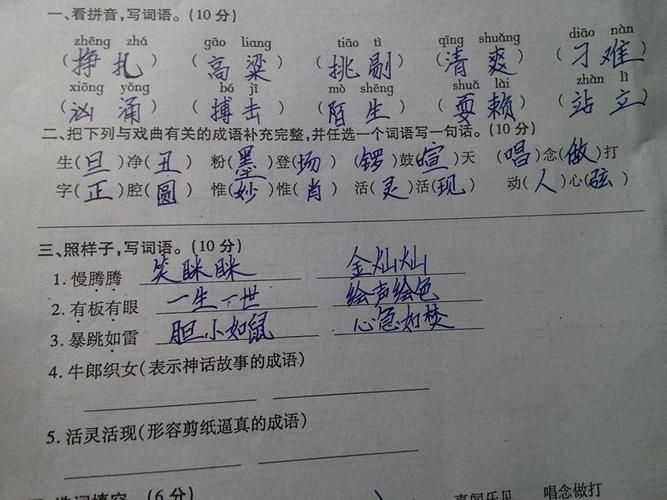 一、看拼音,写词语。(10分)
zhēng zhá gāo liang tiāo tì qīng shuǎng diāo nàn
(挣扎) (高粱) (挑剔) (清爽) (刁难)
xiōng yǒng bó jī mò shēng shuǎ lài zhàn lì
(汹涌) (搏击) (陌生) (耍赖) (站立)
二、把下列与戏曲有关的成语补充完整,并任选一个词语写一句话。(10分)
生(旦)净(丑) 粉(墨)登(场) (锣)鼓(喧)天 (唱)念(做)打
字(正)腔(圆) 惟(妙)惟(肖) 活(灵)活(现) 动(人)心(弦)
三、照样子,写词语。(10分)
1. 慢腾腾 笑眯眯 金灿灿
2. 有板有眼 一生一世 绘声绘色
3. 暴跳如雷 胆小如鼠 心急如焚
4. 牛郎织女(表示神话故事的成语)
5. 活灵活现(形容剪纸逼真的成语)
选词填空。(6分) 喜闻乐见 唱念做打